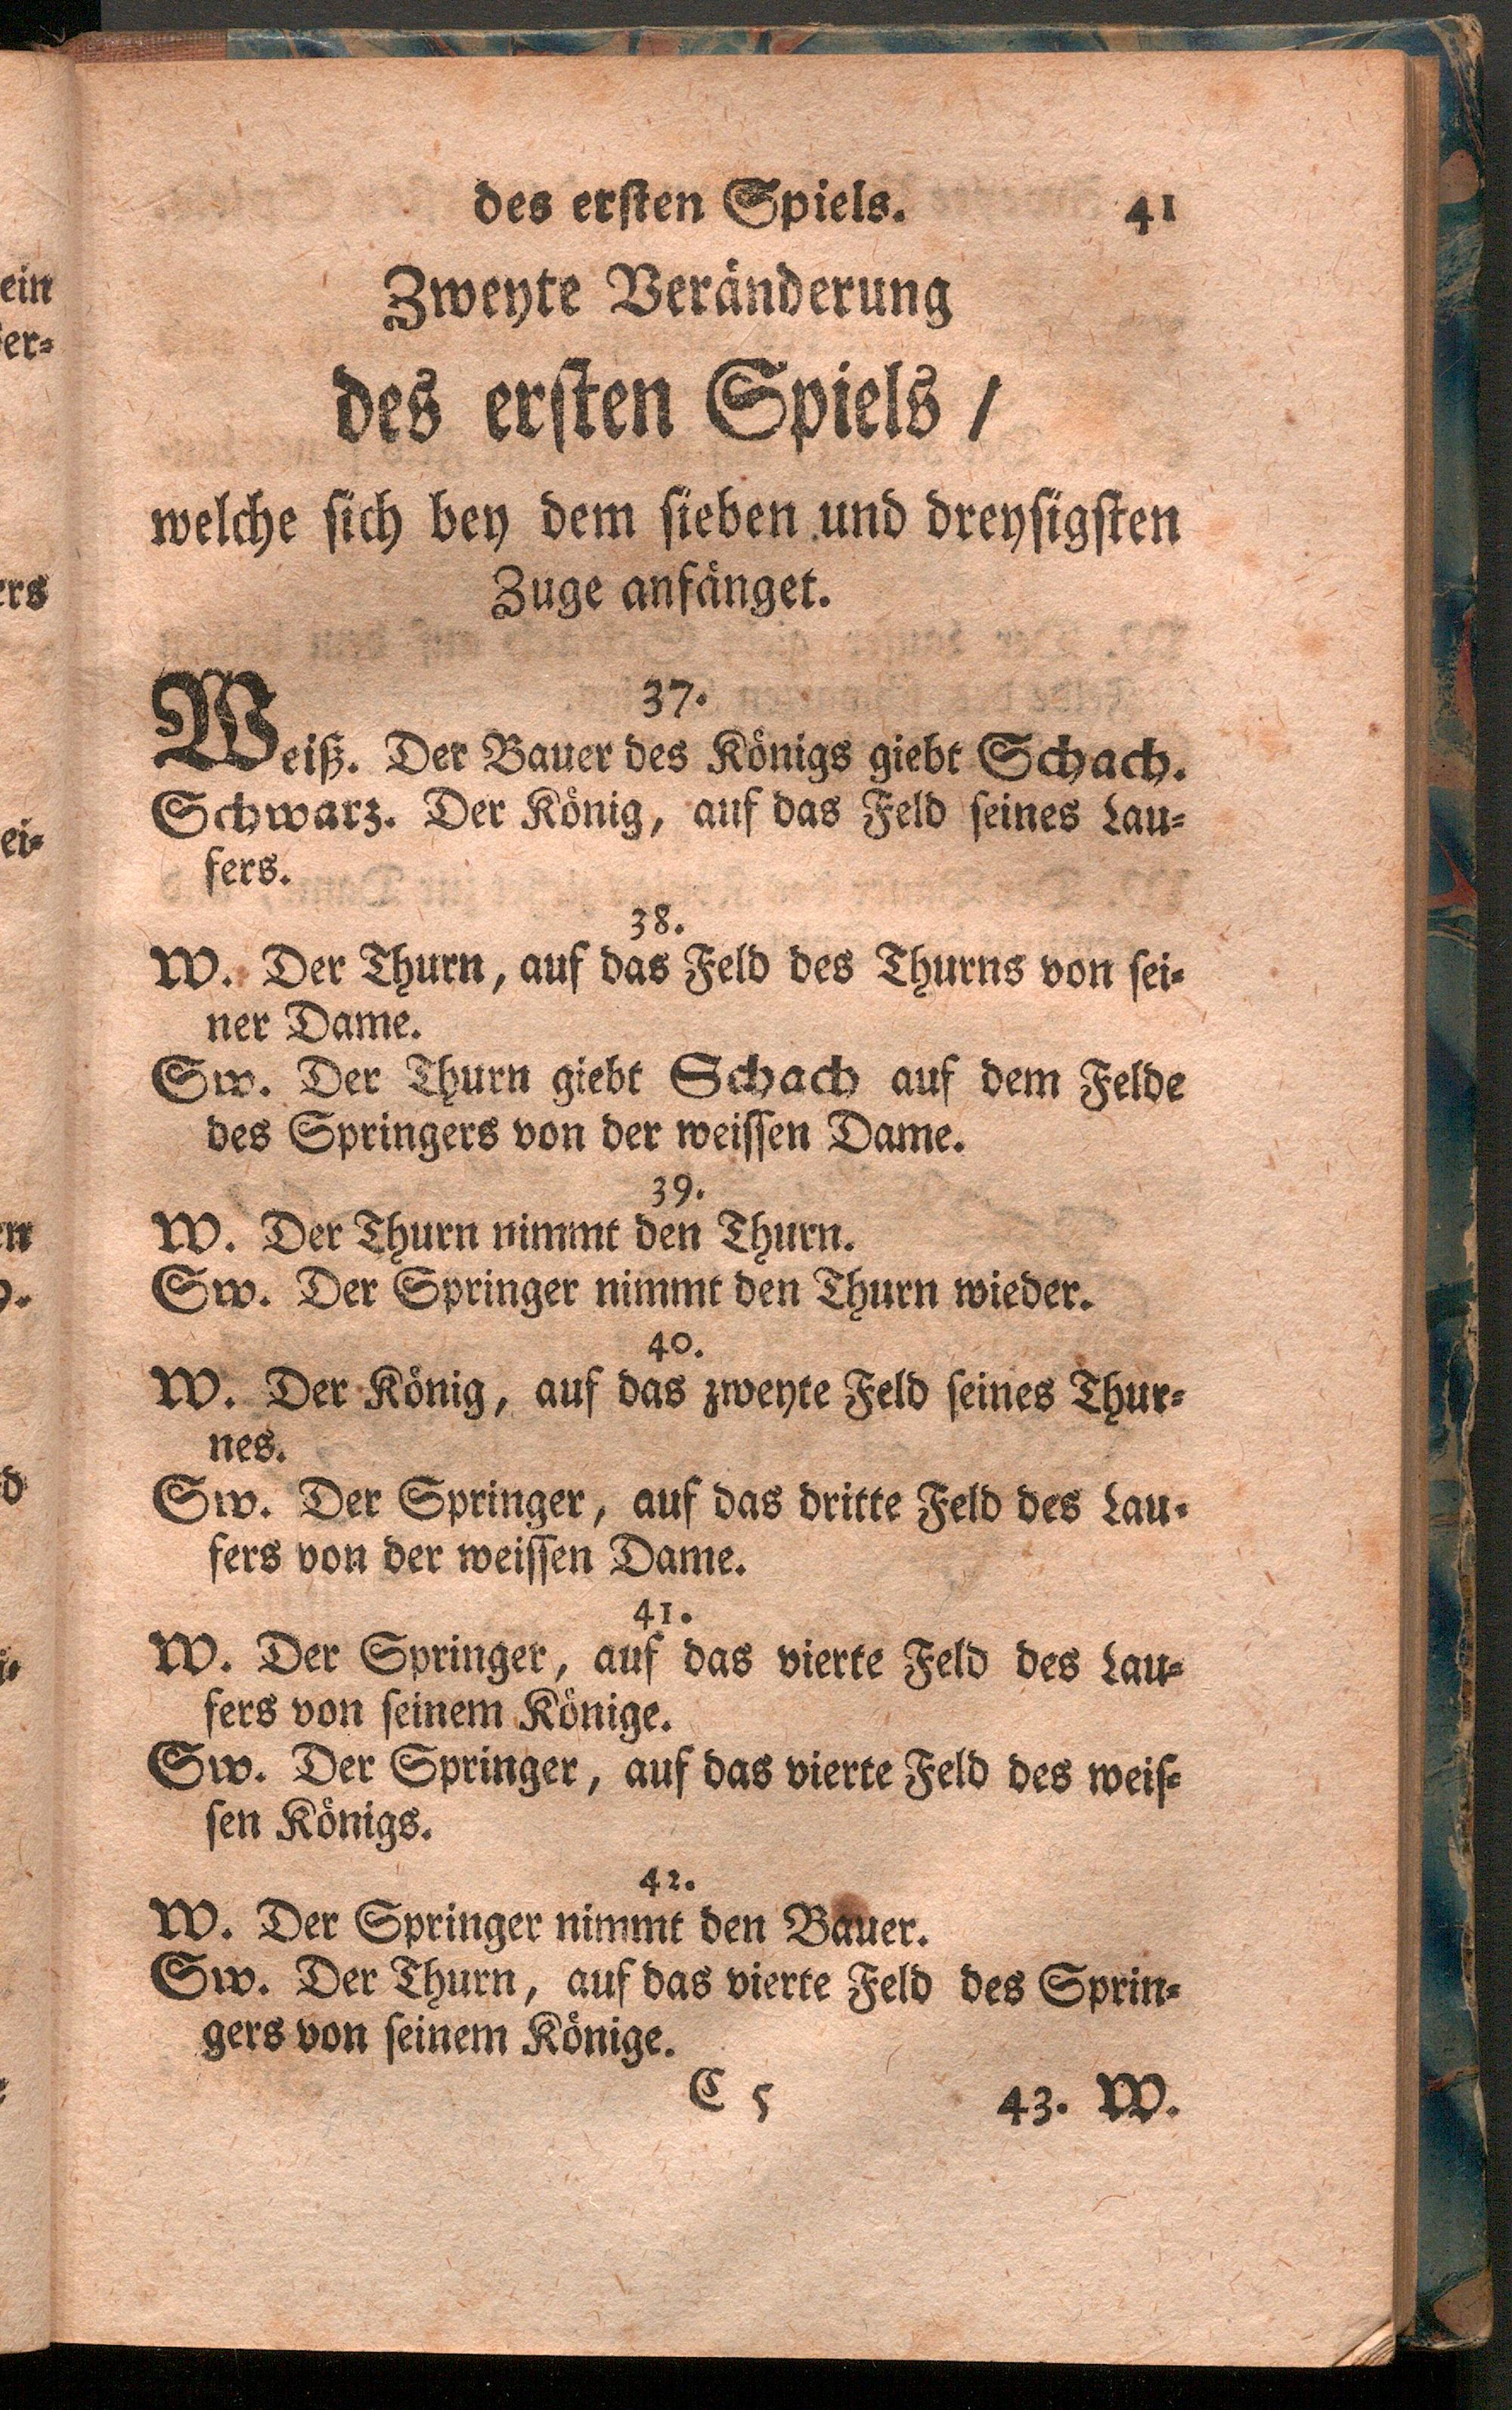 des ersten Spiels. 41
Zweyte Veränderung
des ersten Spiels /
welche sich bey dem sieben und dreysigsten
Zuge anfänget.
37.
Weiß. Der Bauer des Königs giebt Schach.
Schwarz. Der König, auf das Feld seines Lau-
fers.
38.
W. Der Thurn, auf das Feld des Thurns von sei-
ner Dame.
Sw. Der Thurn giebt Schach auf dem Felde
des Springers von der weissen Dame.
39.
W. Der Thurn nimmt den Thurn.
Sw. Der Springer nimmt den Thurn wieder.
40.
W. Der König, auf das zweyte Feld seines Thur-
nes.
Sw. Der Springer, auf das dritte Feld des Lau-
fers von der weissen Dame.
41.
W. Der Springer, auf das vierte Feld des Lau-
fers von seinem Könige.
Sw. Der Springer, auf das vierte Feld des weis-
sen Königs.
42.
W. Der Springer nimmt den Bauer.
Sw. Der Thurn, auf das vierte Feld des Sprin-
gers von seinem Könige.
C 5 43. W.